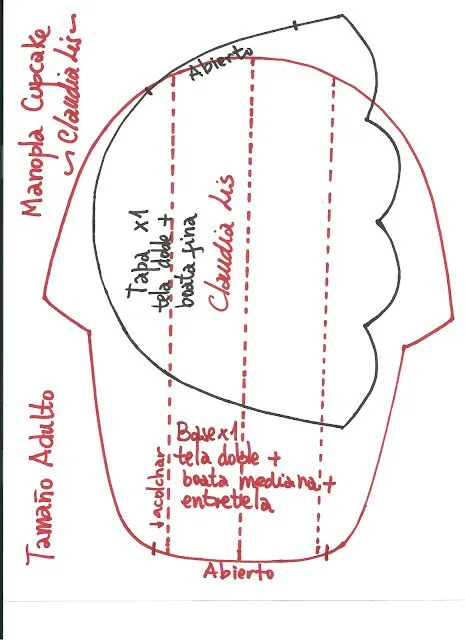 Manopla Cupcake
~ Claudia Lis ~
Tamaño Adulto
Abierto
Tapa x1
tela doble +
boata fina
Claudia Lis
acolchar
Base x1
tela doble +
boata mediana +
entretela
Abierto